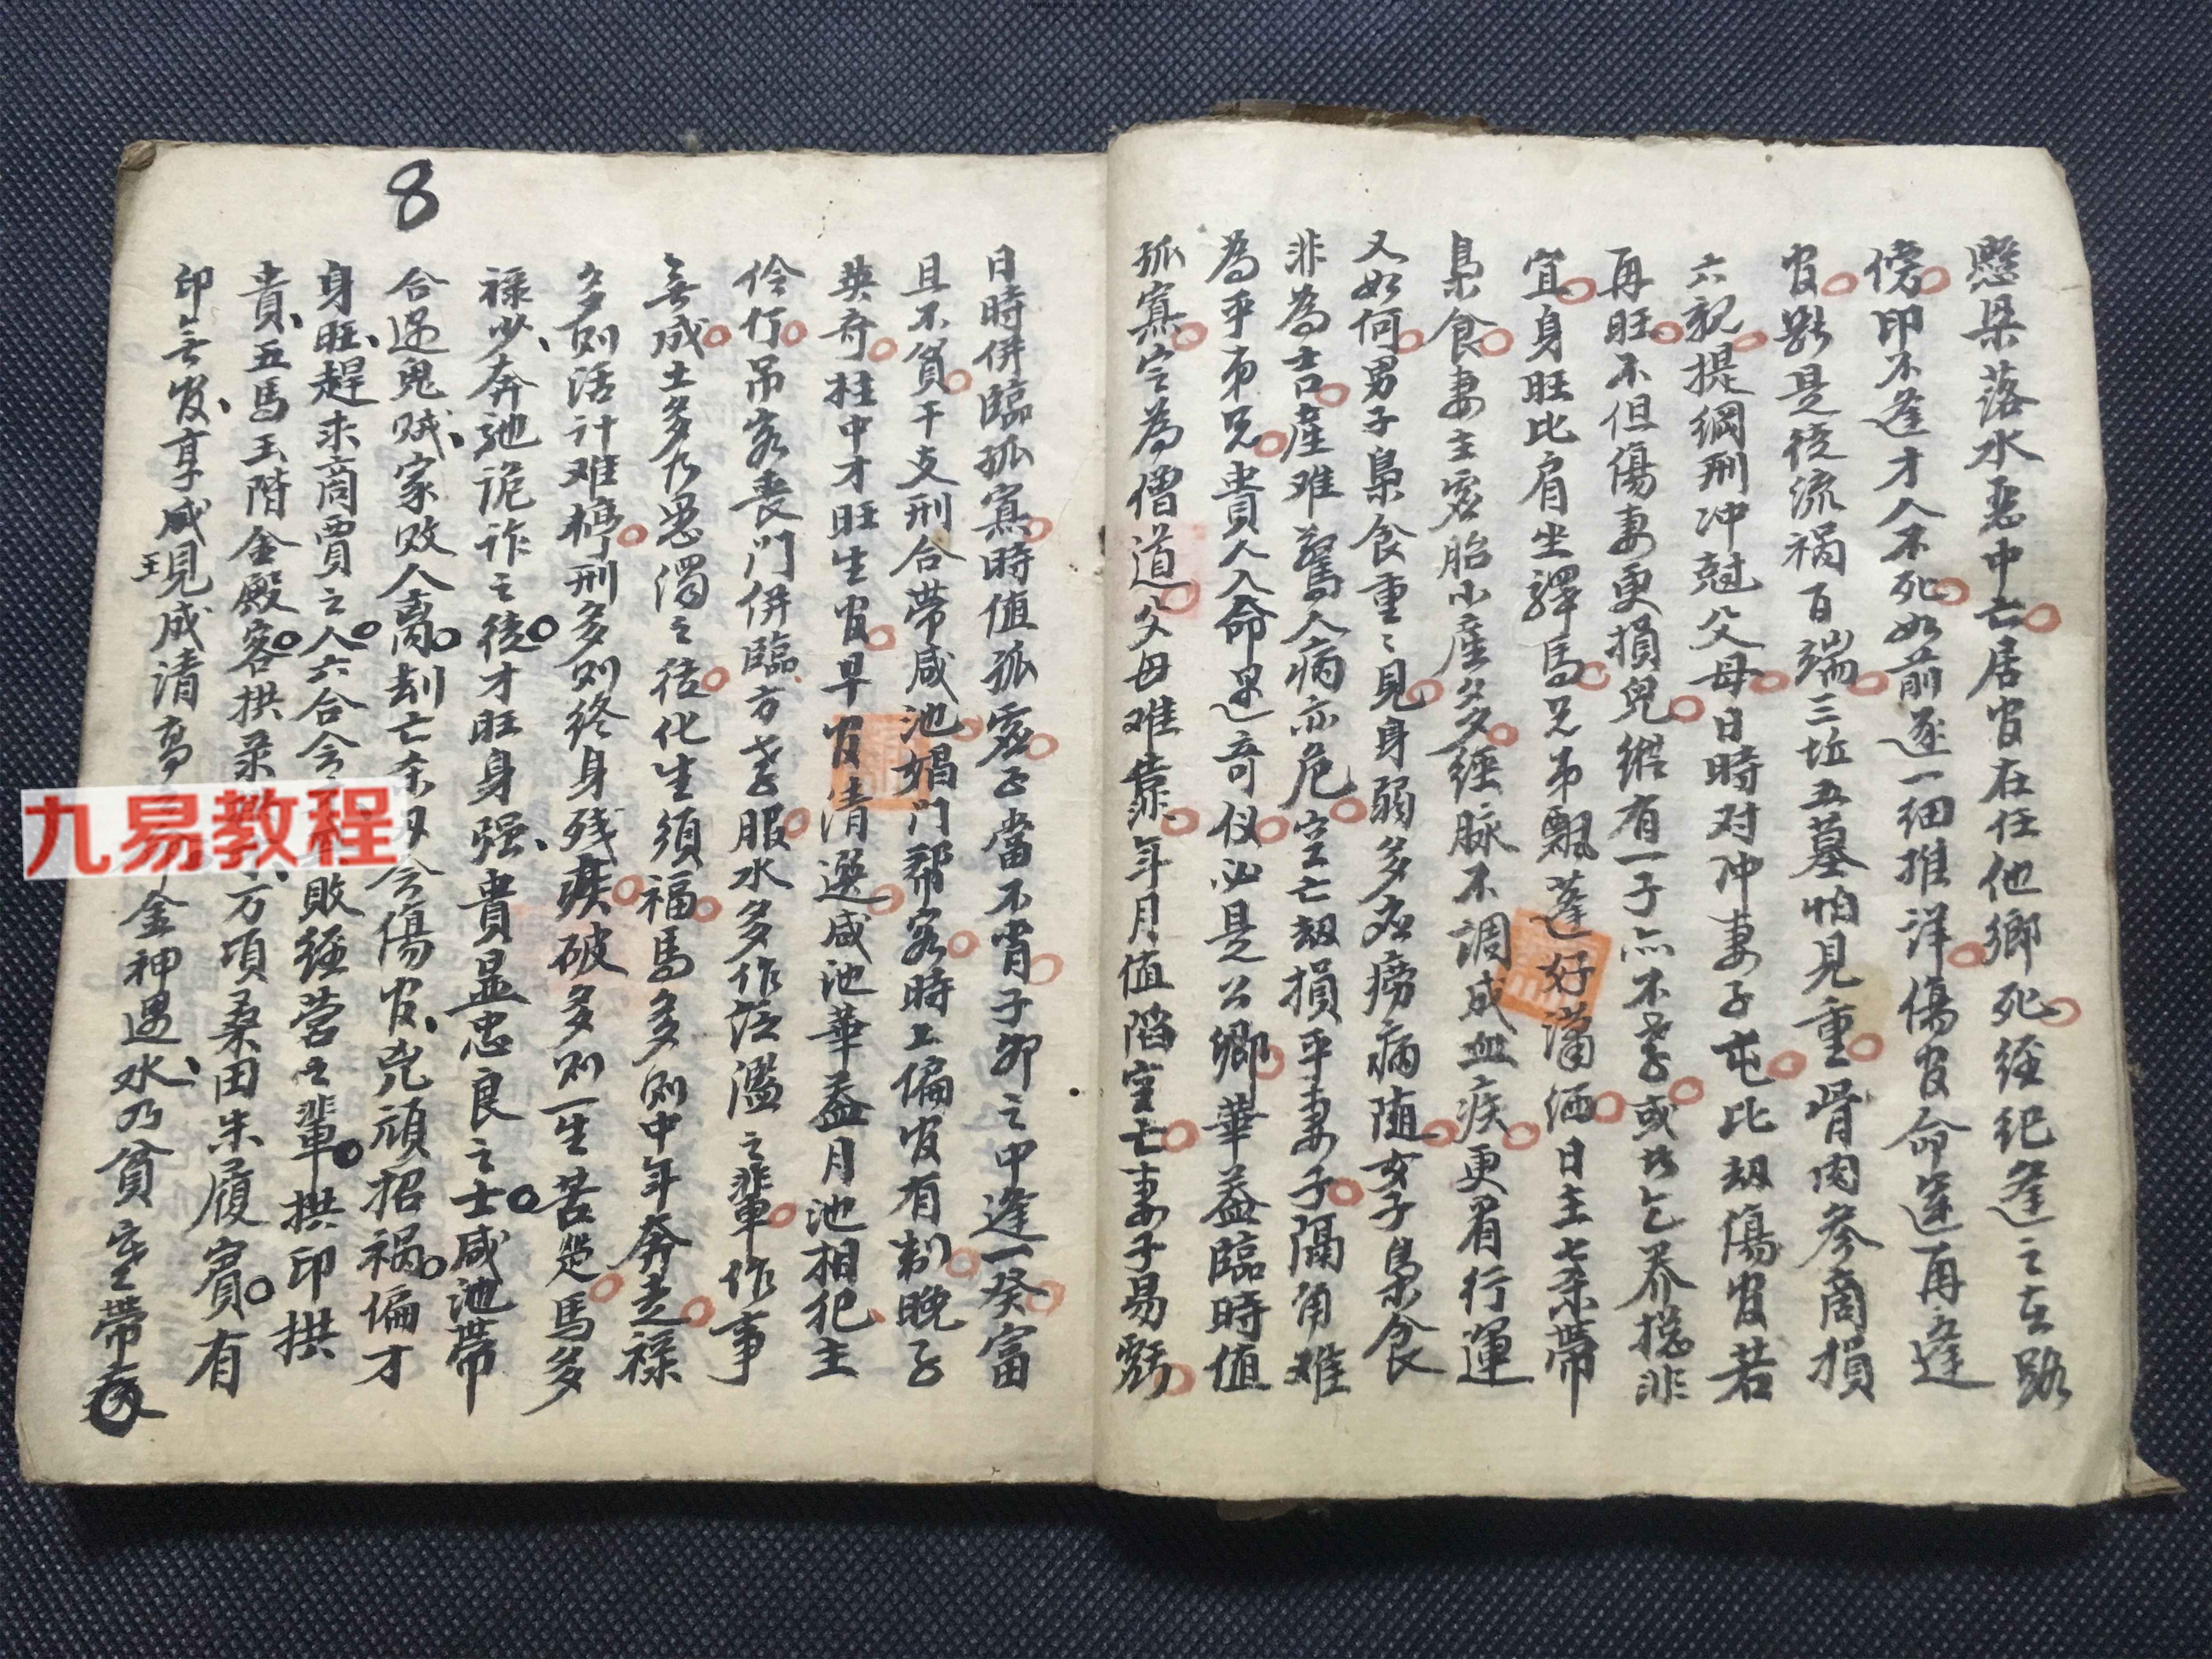 懸梁落水惡中亡居官在任他鄉死經紀逢之在路
傍印不逢才人不死如前逐一細推詳傷官命運再逢
官断是徒流禍百端三坵五墓怕見重骨肉參商損
六親提綱刑冲尅父母日時对冲妻子屯比刼傷官若
再旺不但傷妻更損兒縱有一子亦不孝或乞养撓非
宜身旺比肩坐驛馬兄弟飄蓬好瀟洒日主七杀帶
梟食妻主虛胎小產多經脉不調成血疾更看行運
又如何男子梟食重〻見身弱多應癆病随女子梟食
非為吉產难驚人病亦危空亡刼損乎妻子隔角难
為乎弟兄貴人入命遇奇仪必是公卿華蓋臨時值
孤寡定為僧道父母难靠年月值陷空亡妻子易虧
8
日時併臨孤寡時值孤虛子當不肖子卯之中逢一癸富
且不貧干支刑合帶咸池娼門帮客時上偏官有制晚子
英奇柱中才旺生官早官清選咸池華蓋月池相犯主
伶仃吊客喪門併臨方孝服水多作泛濫之輩作事
無成土多乃思濁之徒化生須福馬多則中年奔走祿
多則活計难停刑多則终身残疾破多則一生苦楚馬多
祿少奔馳詭诈之徒才旺身强貴显忠良之士咸池帶
合遇鬼贼家敗人离刦亡杀刃会傷官克頑招禍偏才
身旺趕求商賈之人六合会敗經营之輩拱印拱
貴五馬玉階金殿客拱录方頃桑田朱履賓有
印無官享咸現成清高金神遇水乃貧空帶
王
九易教程